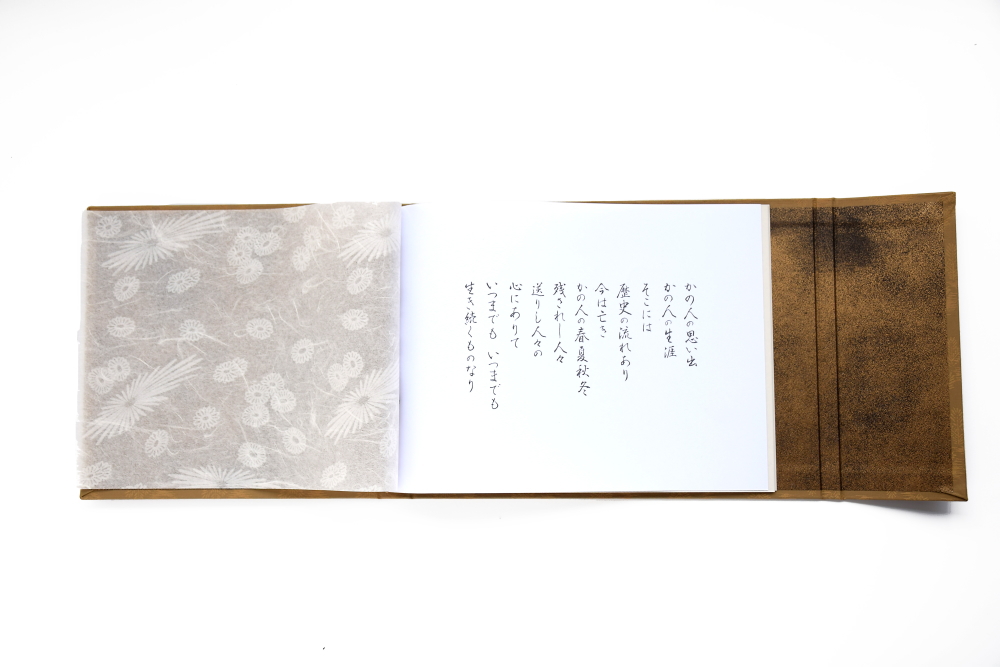 かの人の思い出
かの人の生涯
そこには
歴史の流れあり
今は亡き
かの人の春夏秋冬
残されし人々
送りし人々の
心にありて
いつまでも いつまでも
生き続くものなり